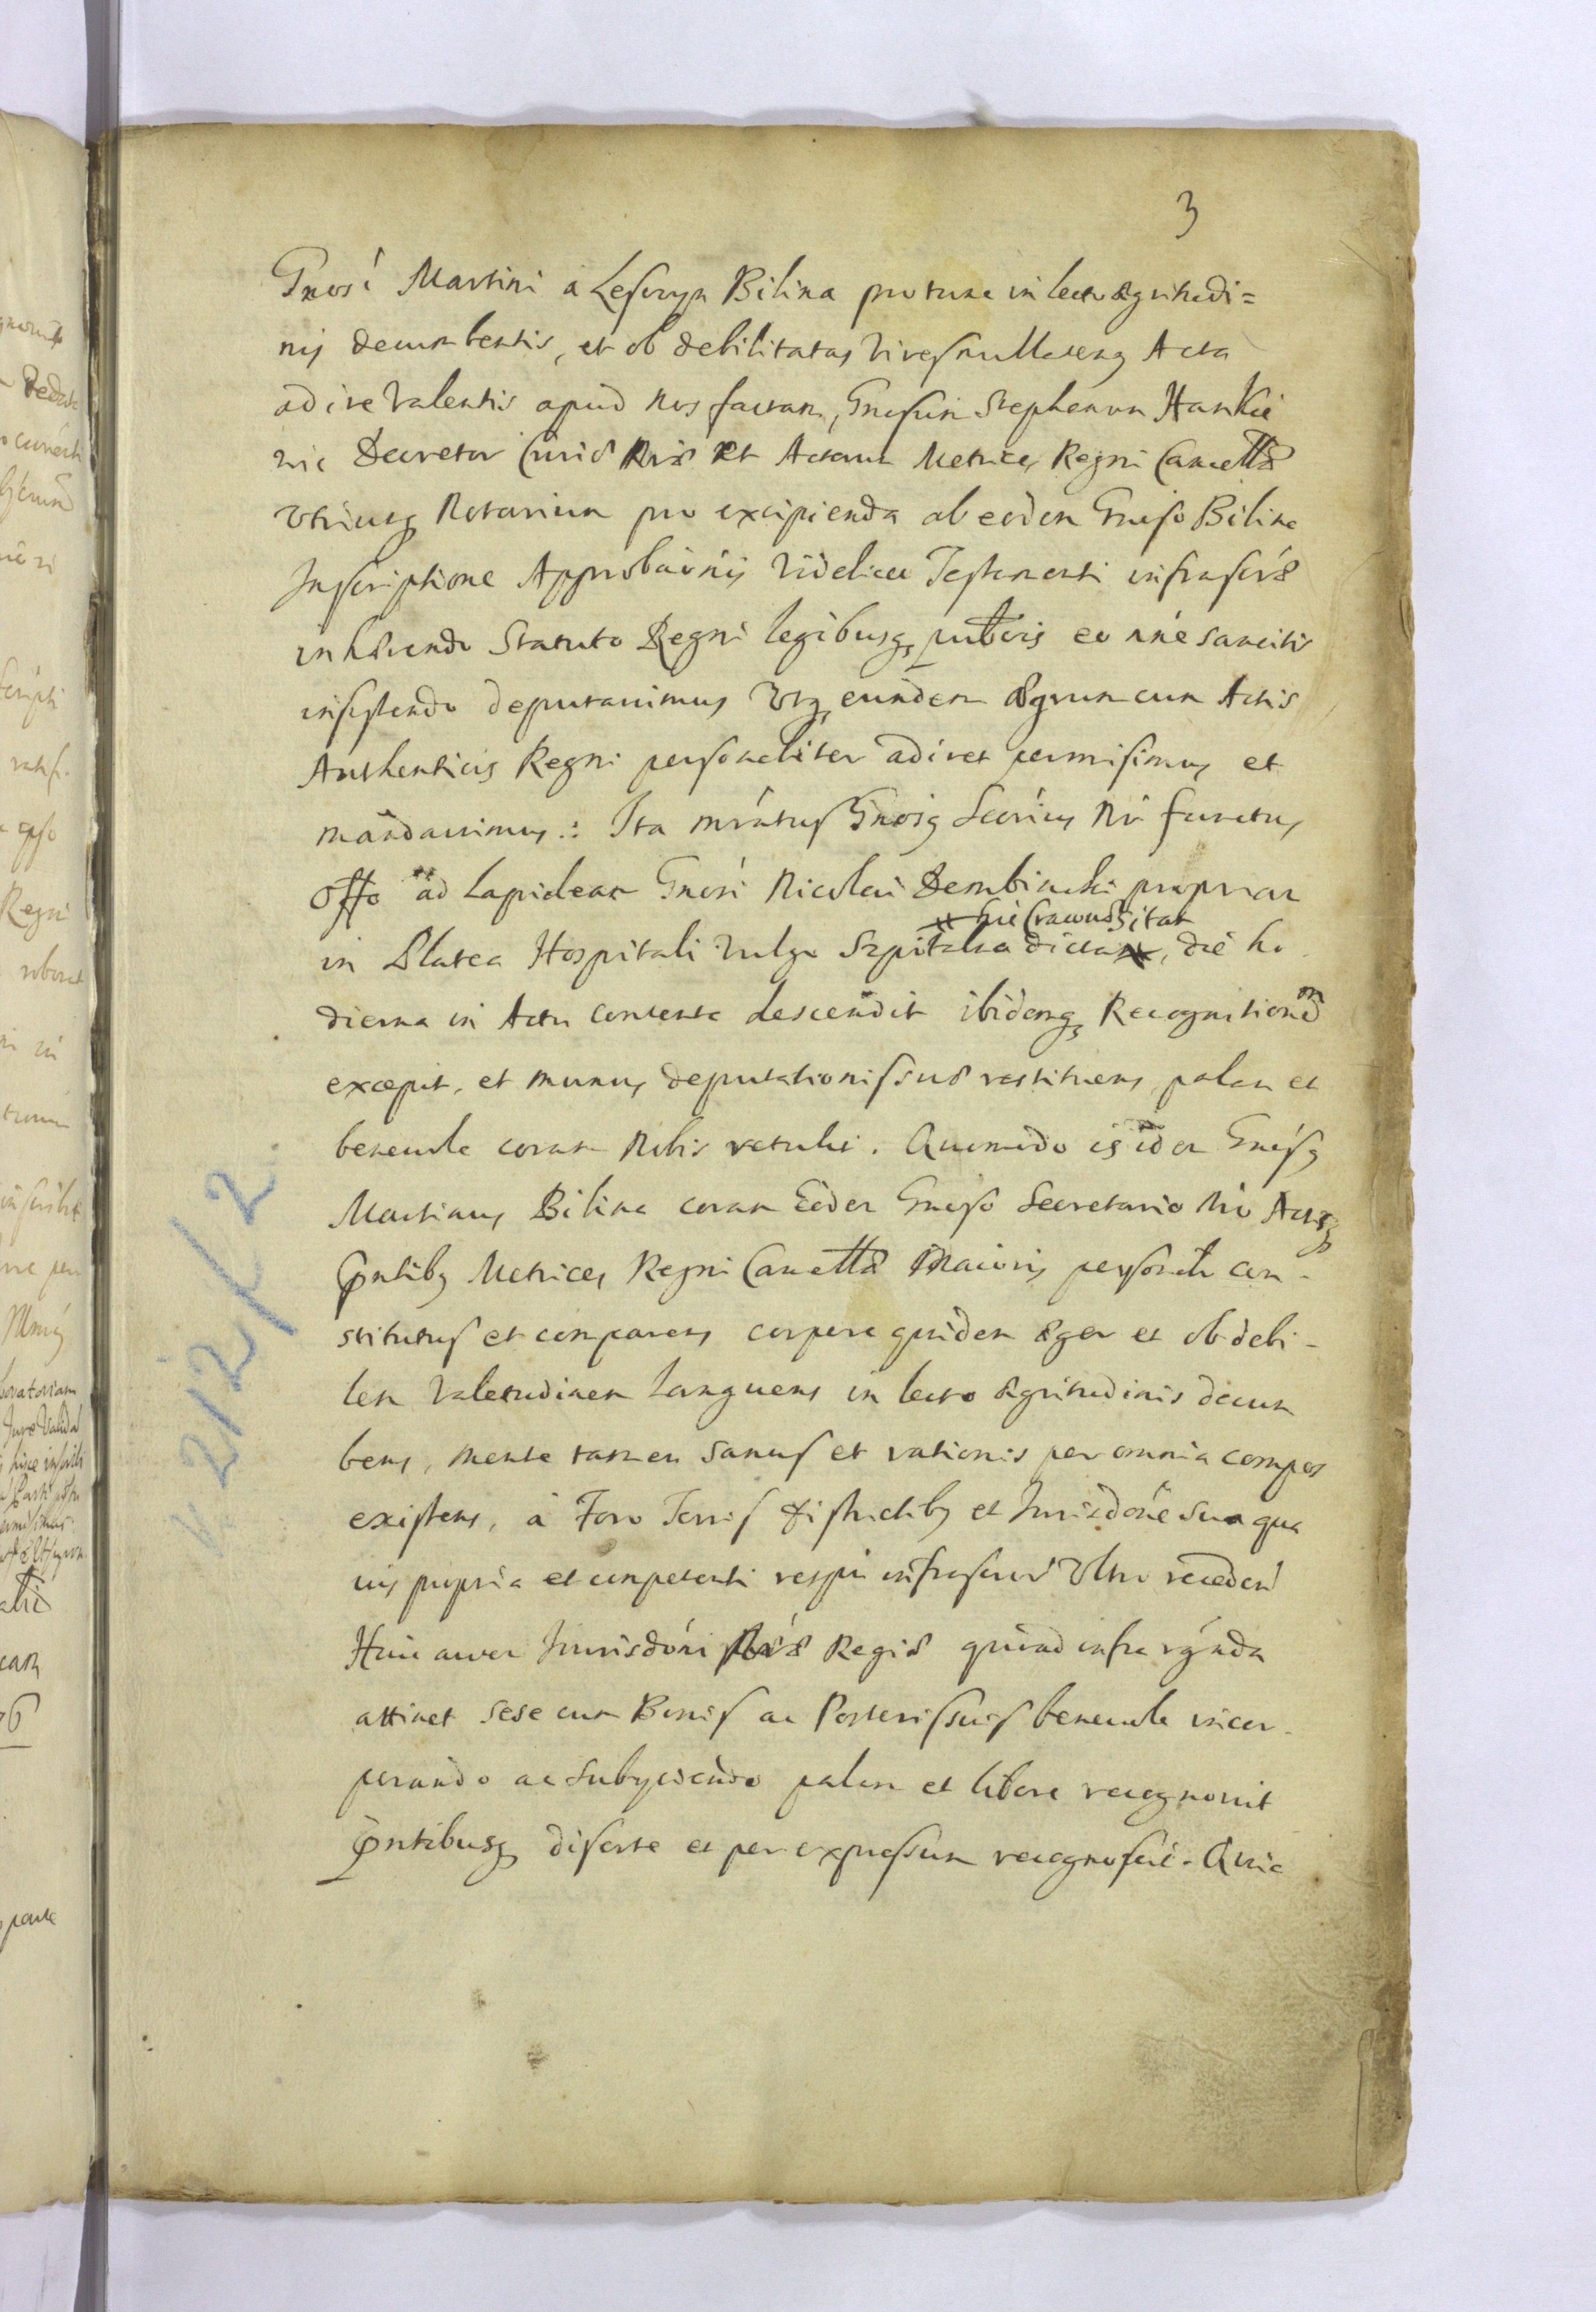 3
Gnosi Martini a Lesczyn Bilina protunc in lecto ægritudi=
nis decumbentis, et ob debilitatas vires nullatenq Acta
adire valentis apud nos factam, Gnosum Stephanum Hankie
wic Decretor Curiæ Nræ Et Actorum Metrices Regni Cancellæ
Utriusq Notarium pro excipienda ab eodem Gnoso Bilina
Inscriptione Approbaonis videlicet Testamenti infrascr
inhærendo Statuto Regni legibusq publicis eo nne sancitis
insistendo deputavimus Utq eundem ægrum cum Actis
Authenticis Regni personaliter adiret permisimus et
mandavimus: Ita mratus Gnosq Secrius Nr functus
Offo ad Lapideam Gnosi Nicolai Dembinski propriam
hic Cracoviæ sitam
in Platea Hospitali vulgo Szpitalna dictam, die ho
dierna in Actu contenta descendit ibidemq Recognitionem
excepit, et munus deputationis suæ restituens palam et
benevole coram Nobis retulit. Quomodo is idem Gnosq
Martinus Bilina coram Eodem Gnoso Secretario Nro Actisq
pntibq Metrices Regni Cancellæ Maioris personlr con-
stitutus et comparens corpore quidem æger et ob debi-
lem Valetudinem languens in lecto ægritudinis decum
bens, mente tamen sanus et rationis per omnia compos
existens, à Foro Terris districtibq et Jurisdone sua qua
vis propria et competenti resptu infrascrit Ultro receden
Huic autem Jurisdoni Nræ Regiæ quoad infra rgnda
attinet sese cum Bonis ac Posteris suis benevole incor-
porando ac subyciendo palam et libere recognovit
pntibusq diserte et per expressum recognoscit. Quia
212/2.